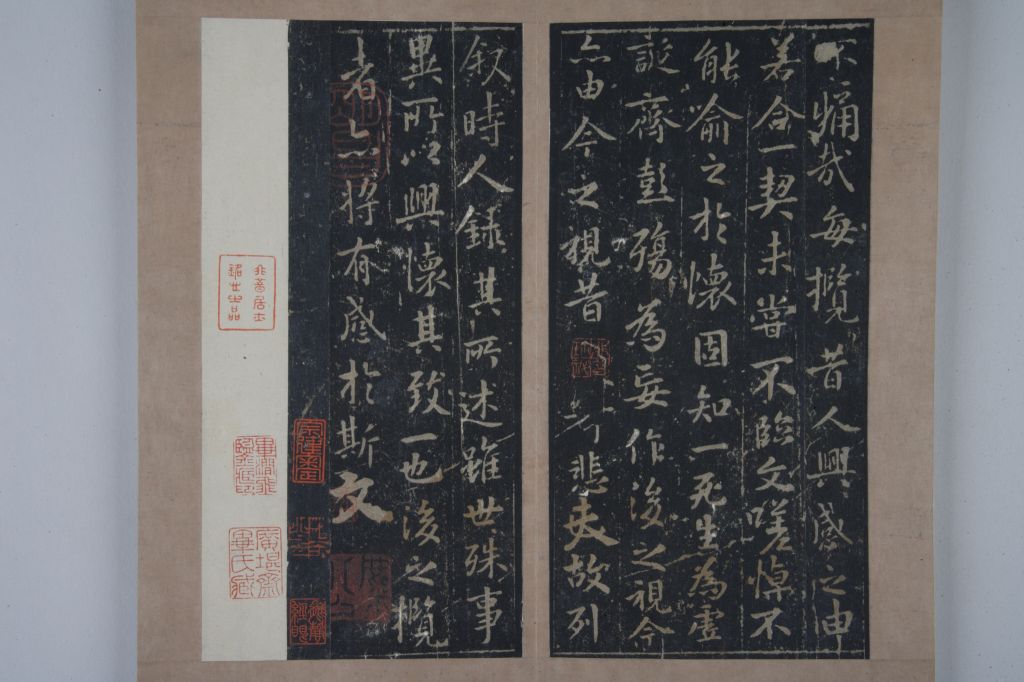 不痛哉每攬昔人興感之由
若合一契未嘗不臨文嗟悼不
能喻之於懷固知一死生為虛
誕齊彭殤為妄作後之視今
亦由今之視昔悲夫故列
敘時人錄其所述雖世殊事
異所以興懷其致一也後之攬
者亦將有感於斯文
廣堪齋
畢氏藏